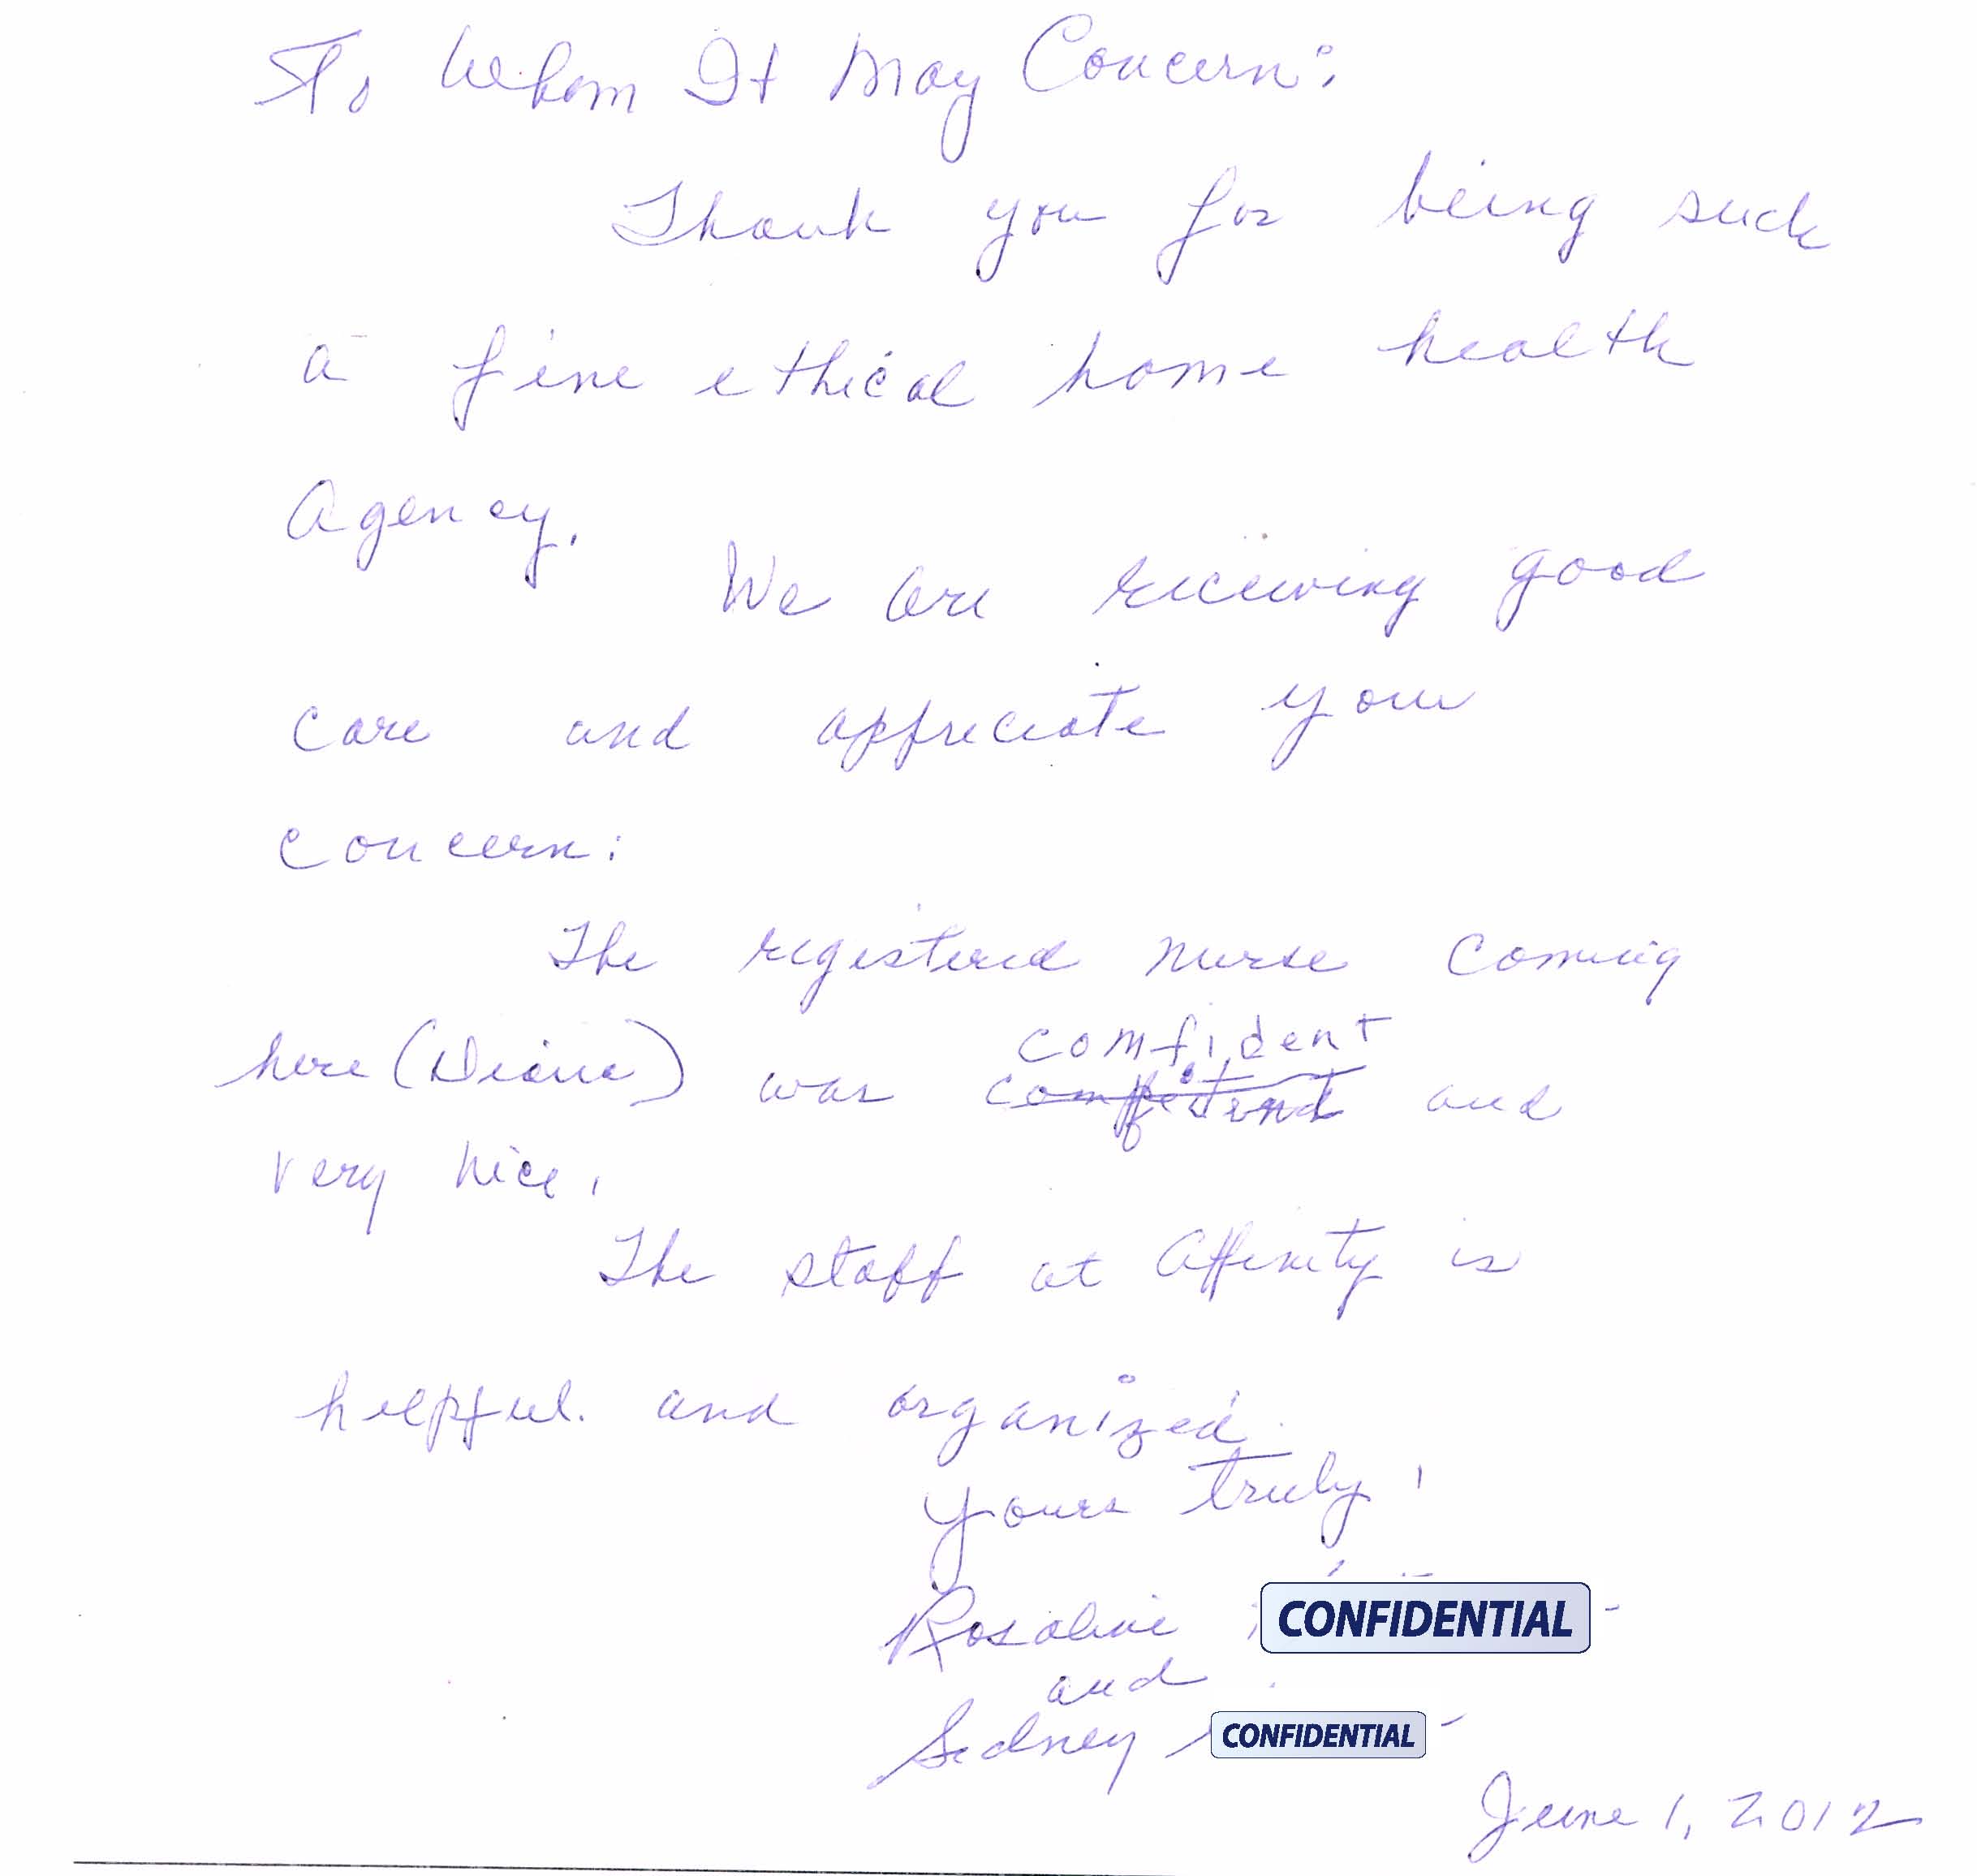 To Whom It May Concern:
Thank you for being such
a fine ethical home health
agency.
We are receiving good
care and appreciate your
concern.
The registered nurse coming
comfident
here (Diane) was and
very nice.
The staff at Affinity is
helpful and organized.
Yours truly,
Rosaline CONFIDENTIAL
and
Sidney CONFIDENTIAL
June 1, 2012